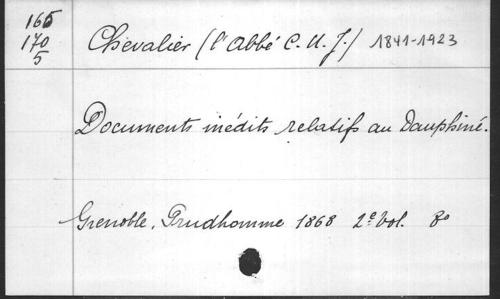 165
170
5
Chevalier (l'abbé C. U. J.) 1841-1923
Documents inédits relatifs au Dauphiné.
Grenoble, Prudhomme 1868 2e vol. 8o